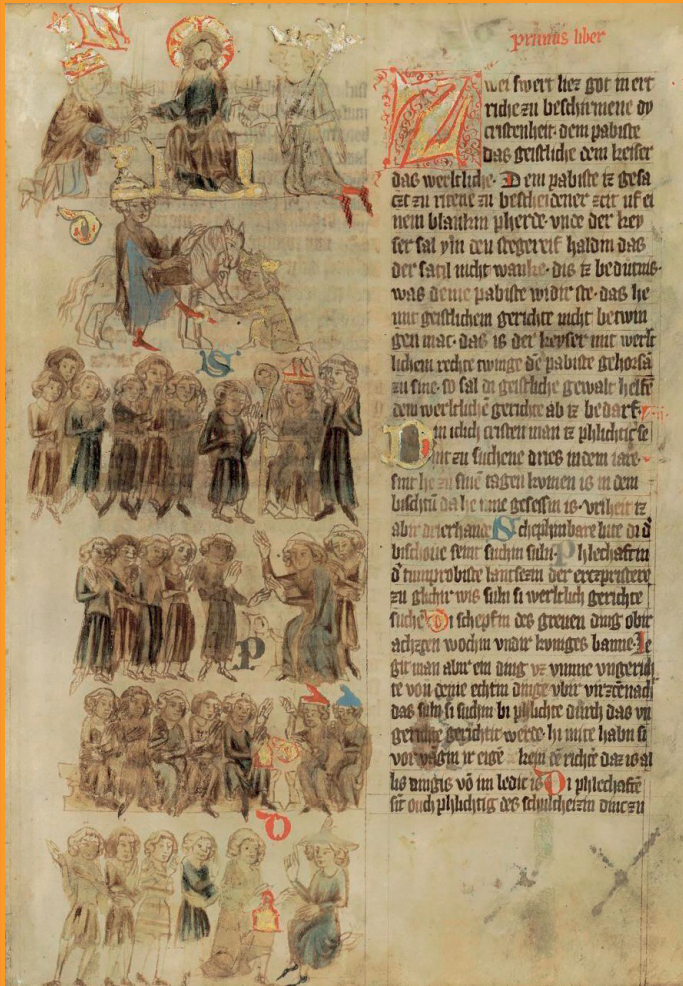 primus liber
Zwei swert liez got in ert
riche zu beschirmene dy
cristenheit· dem pabiste
das geistliche dem keiser
das werltliche· Dem pabiste iz gesa
czt zu ritene zu bescheidener zcit uf ei
nem blankin pherde· vnde der key
ser sal ym den stegereif haldin das
der satil nicht wanke· dis iz bedutnis·
was deme pabiste widir ste· das he
mit geistlichem gerichte nicht betwin
gen mac· das is der keyser mit werlt
lichem rechte twinge dē pabiste gehorsā
zu sine· so sal di geistliche gewalt helfē
dem werltlichē gerichte ab iz bedarf·
Ein iclich cristen man iz phlichtic se
int zu suchene dries in dem iare·
sint he zu sinē tagen kumen is in dem
bischtū da he inne gesessin is· vriheit iz
abir drierhande S chephinbare lute di d'
bischoue seint suchin suln· P hlechaftin
d' tumprobiste lantsezin der erczpristere
zu glichir wis suln si werltlich gerichte
suchē Di schepfin des greuen ding obir
achzen wochin vndir kuniges banne· Le
git man abir ein ding vz vmme vngerich
te von deme echtin dinge vbir virzcēnach
das suln si suchin bi phlichte durch das vn
gerichte gerichtit werde· hi mite habn si
vorvangin ir eigē kein dē richtē daz is al
lis dingis vō im ledic is Di phlechaftē
sīt ouch phlichtig des schulcheizin dinc zu
S
P
D